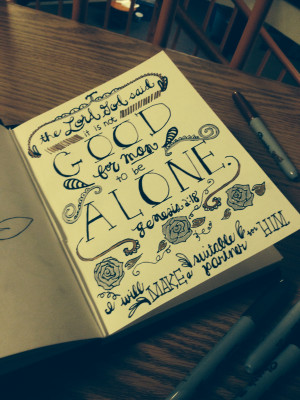 the Lord God said
it is not
GOOD
for man
to be
ALONE.
genesis 2:18
I will MAKE a suitable partner for HIM